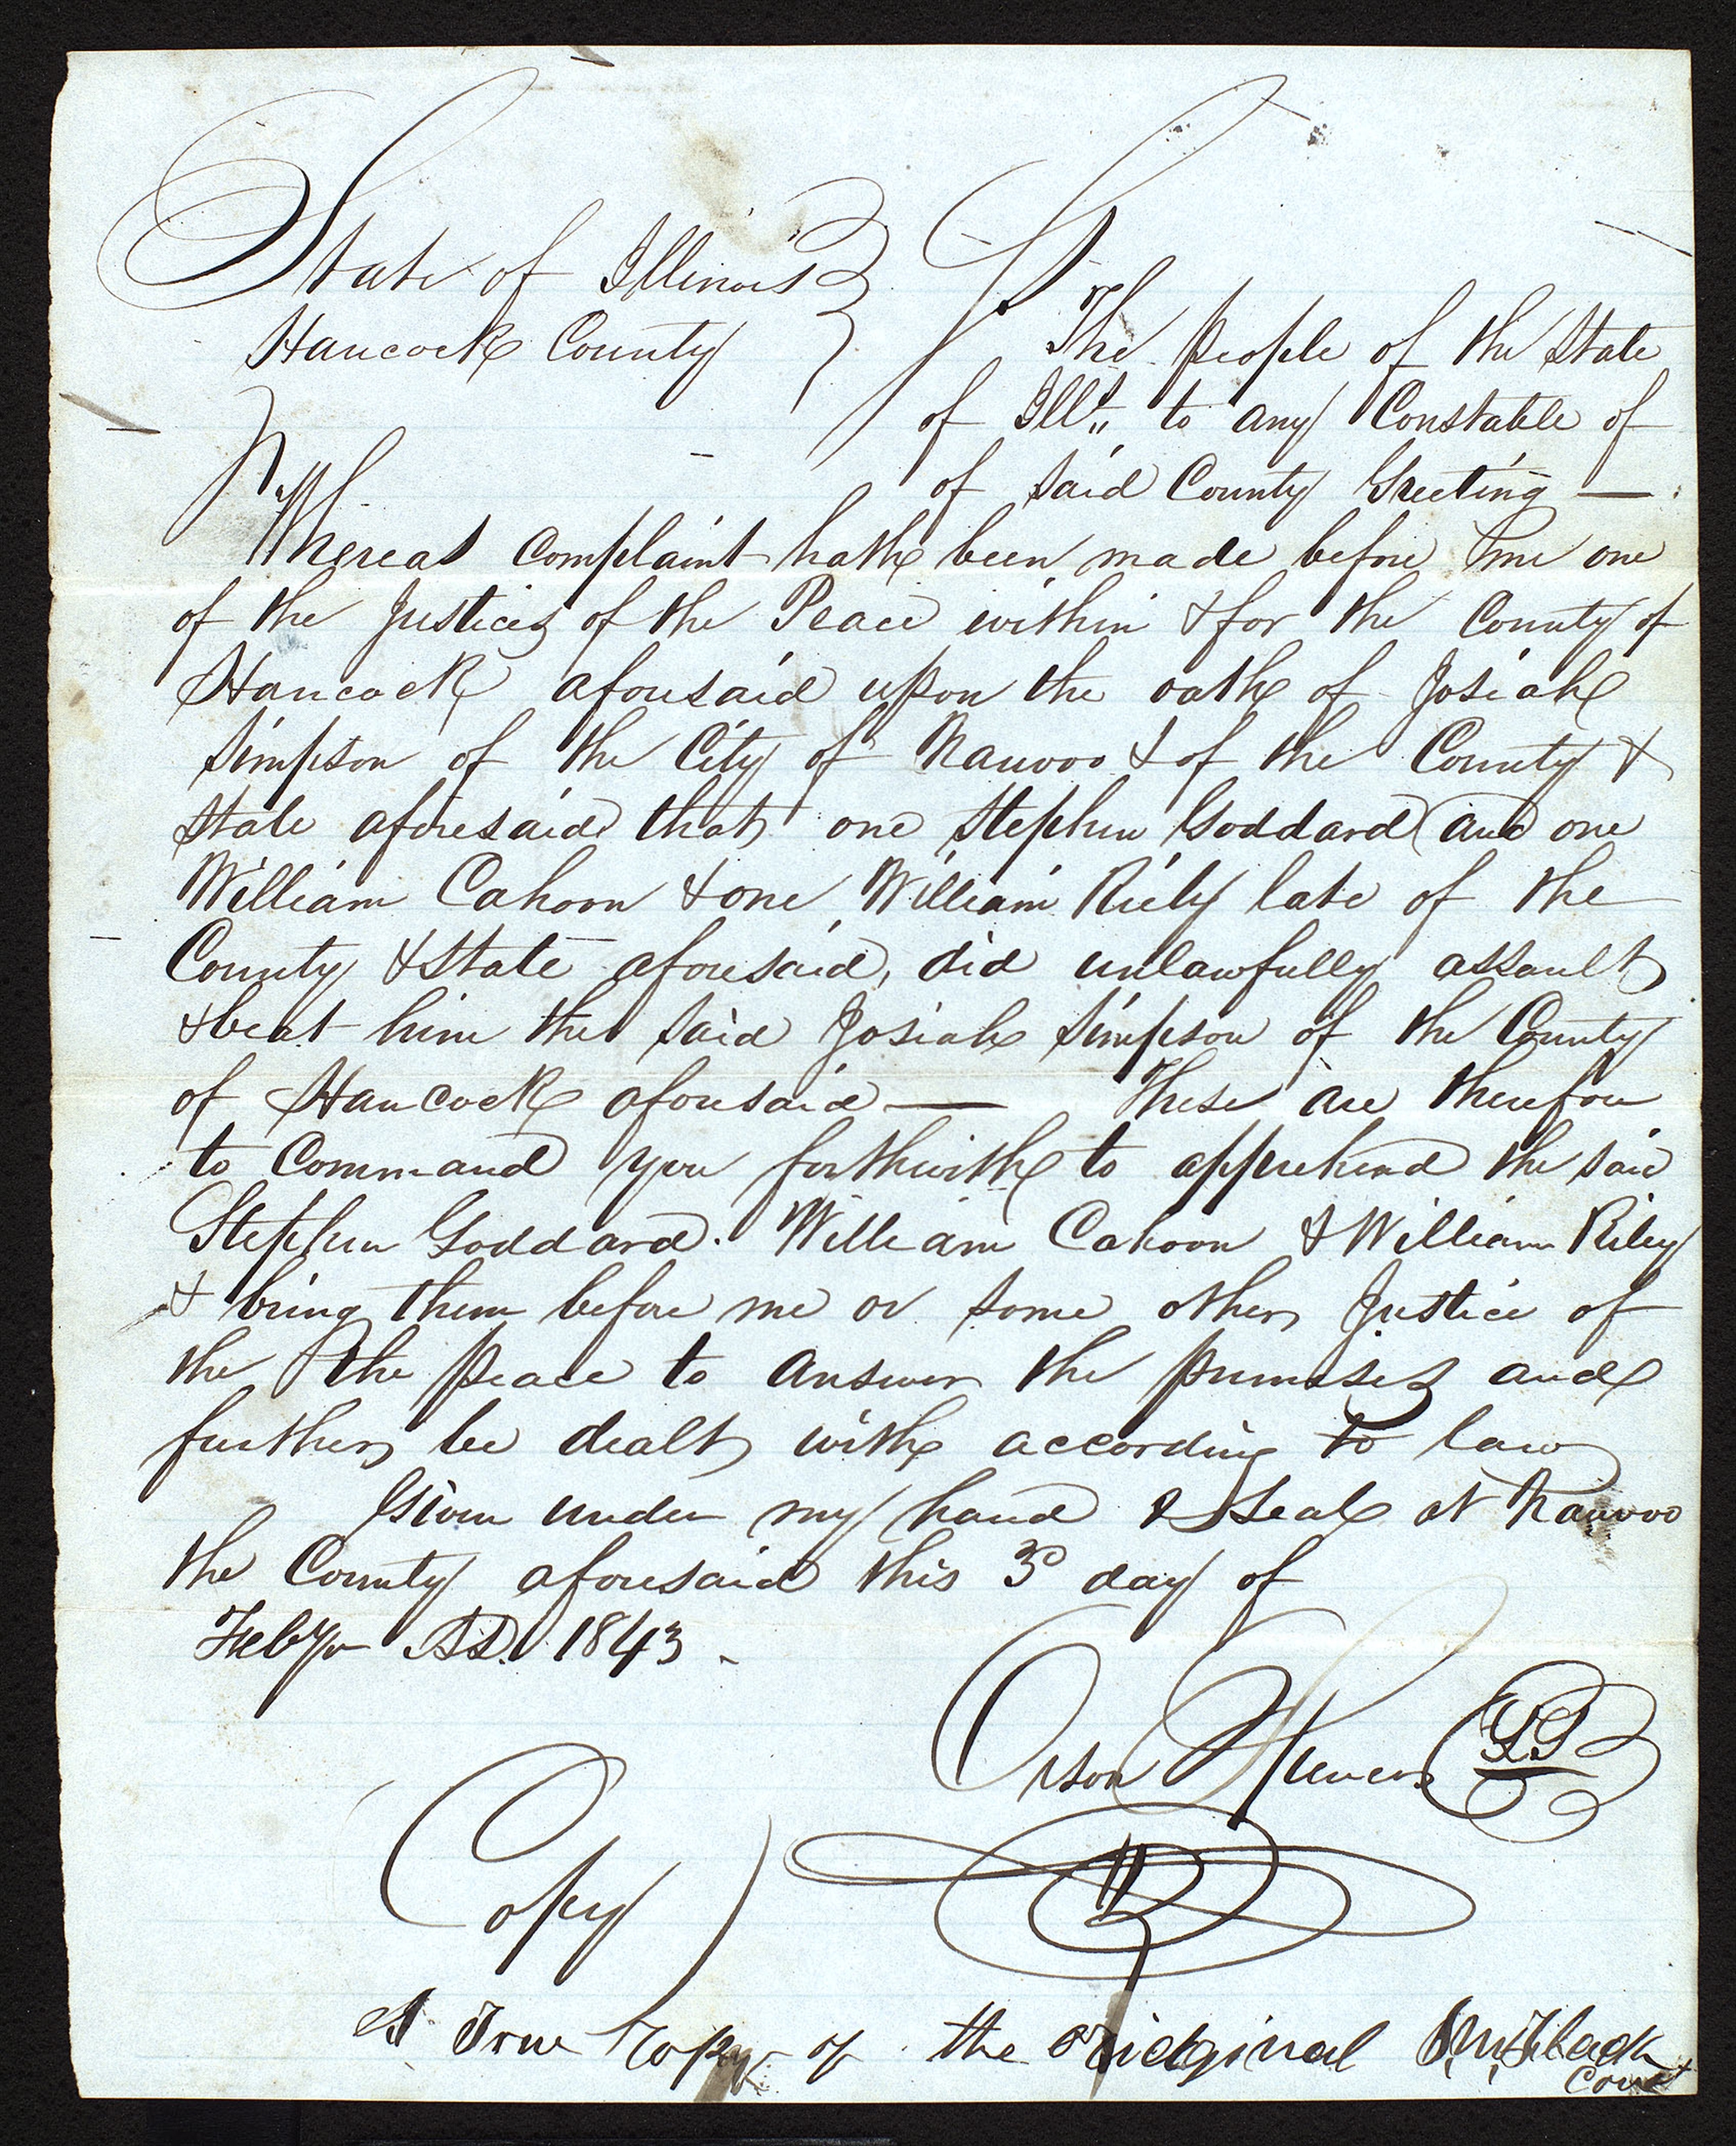 State of Illinois
Hancock County
The People of the State
of Ills. to any Constable of
of said County Greeting —
Whereas complaint hath been made before me one
of the Justices of the Peace within & for the County of
Hancock aforesaid upon the oath of Josiah
Simpson of the City of Nauvoo & of the County &
State aforesaid that one Stephen Goddard and one
William Cahoon & one William Riely late of the
County & State aforesaid, did unlawfully assault
& beat him the said Josiah Simpson of the County
of Hancock aforesaid — These are therefore
to Command you forthwith to apprehend the said
Stephen Goddard. William Cahoon & William Riley
& bring them before me or some other Justice of
the the peace to answer the premises and
further be dealt with according to law
Given under my hand & seal at Nauvoo
the County aforesaid this 3d day of
Feby AD. 1843.
Orson Spencer
Copy
A True Copy of the oridginal
Const